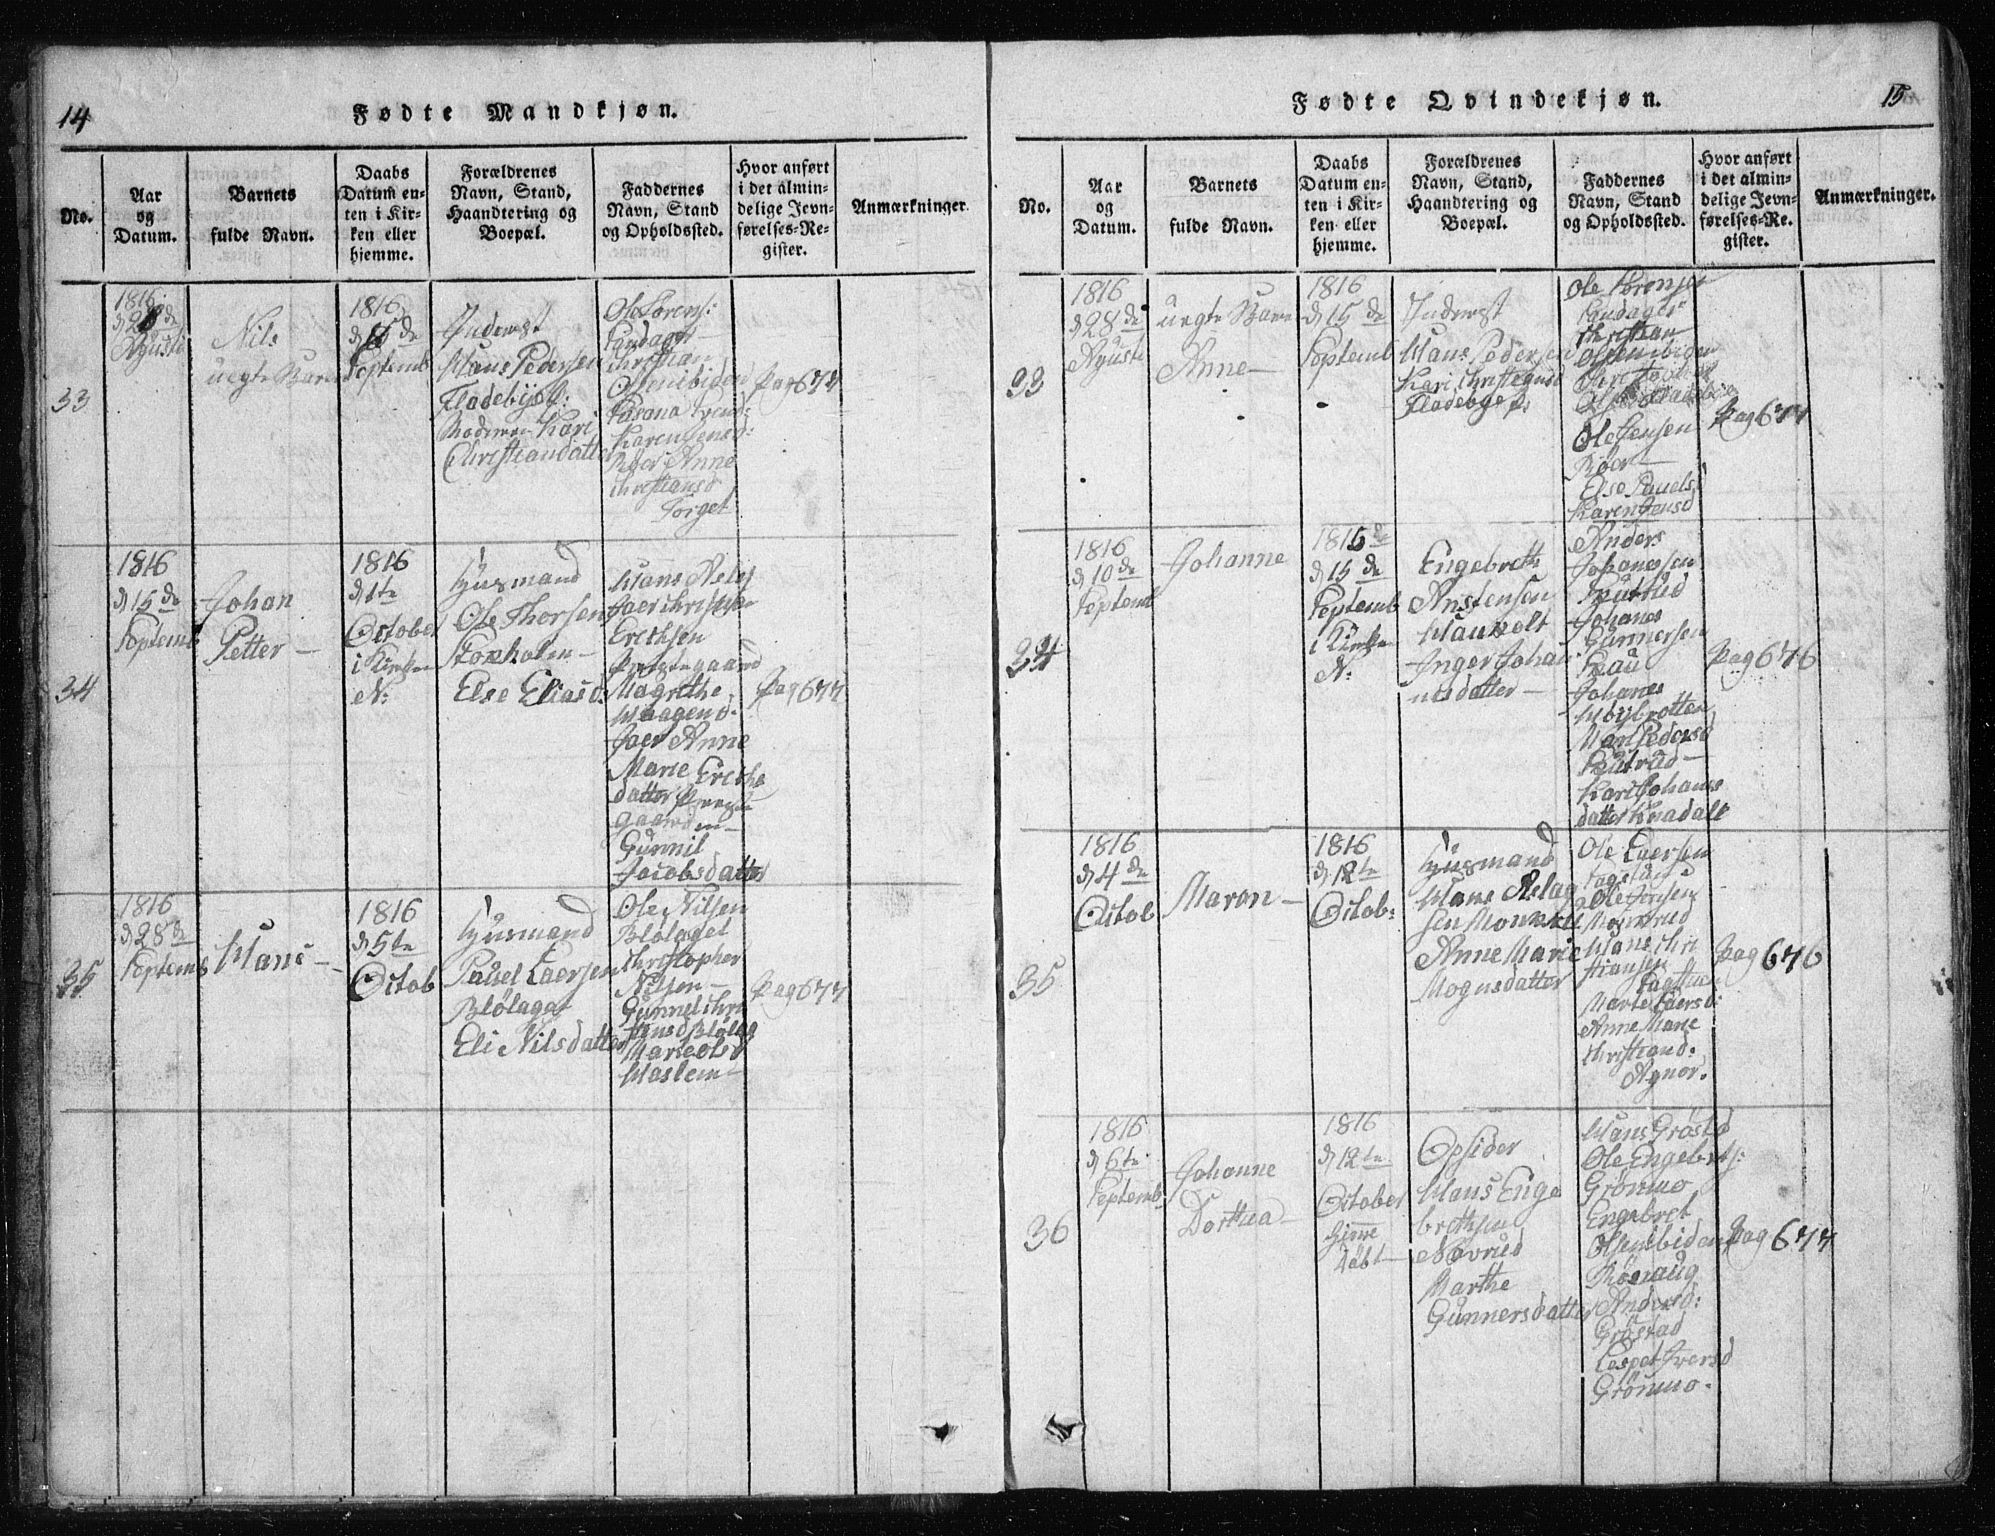 14
Fødte Mandkjøn.
No.
Aar
og
Datum.
Barnets
fulde Navn.
Daabs
Datum en-
ten i Kir-
ken eller
hjemme.
Forældrenes
Navn, Stand,
Haandtering og
Boepæl.
Faddernes
Navn, Stand
og Opholdssted.
Hvor anført
i det almin-
delige Jevn-
førelses-Re-
gister.
Anmærkninger
33
1816
d 28 de
Agusti
Nils
uegte Barn
1816
d 15 de
Septemb
Inderest
Hans Pedersen
Fladebye
Moderen Kari
Christiandatter
Ole Sörens:
Christian
Olsen ibiden
Karen Jensd:
Röer Anne
Christiansd
Torget
Pag 677
34
1816
d 15 de
Septemb
Johan
Petter —
1816
d 1te
October
i Kirken
N:
Husmand
Ole Thorsen
Else Eliasd:
Hans Nels
Joer Christia
Erichsen
Præstegaard
Magrethe
Haagend.
Joer Anne
Marie Erichs
datter Præste
gaarden —
Gunnil
Jacobsdatter
Pag 677
35
1816
d 28 de
Septemb
Hans —
1816
d 5te
Octob
Husmand
Pauel Laersen
Blölaget
Eli Nilsdatter
Ole Nilsen
Blölaget
Christopher
Nilsen —
Gunnel Chri
stensd Blölag
Marie Olsd
Haslem —
Pag 677
15
Fødte Qvindekjøn.
No.
Aar
og
Datum.
Barnets
fulde Navn.
Daabs
Datum en-
ten i Kir-
ken eller
hjemme.
Forældrenes
Navn, Stand,
Haandtering og
Boepæl.
Faddernes
Navn, Stand
og Opholdssted.
Hvor anført
i det almin-
delige Jevn-
førelses-Re-
gister.
Anmærkninger.
33
1816
d 28 de
Agusti
uegte Barn
Anne —
1816
d 15 de
Septemb
Inderest
Hans Pedersen
Kari Christiansd
Fladebye
Ole Sörensen
Christian
Olsen ibiden
Ole Jensen
Röer —
Else Pauelsd
Karen Jensd
Pag 677
34
1816
d 10 de
Septemb
Johanne
1816
d 15 de
Septemb
i Kirken
N:
Engebreth
Anstensen
Inger Johan
nesdatter —
Anders
Johanessen
Johanes
Gunnersen
Johanes
Mari Pedersd
Kari Johanes
datter Knadalt
Pag 676
35
1816
d 4 de
Octob
Maren —
1816
d 12te
Octob:
Husmand
Hans Aslag
sen
Anne Marie
Mognsdatter
Ole Laersen
Ole Jensen
Hans Chri
stiansen
Marte Laersd:
Anne Marie
Christiand:
Agnor.
Pag 676
36
1816
d 6te
Septemb
Johanne
Dorthea —
1816
d 12te
October
hjemme
Döbt —
Opsider
Hans Enge
brethsen
Marthe
Gunnersdatter
Hans Gröstad
Ole Engebrets:
Grönmo
Engebret
Olsen ibiden
Rönnaug
Andersd:
Gröstad
Lespet Iversd
Grönmo.
Pag 677